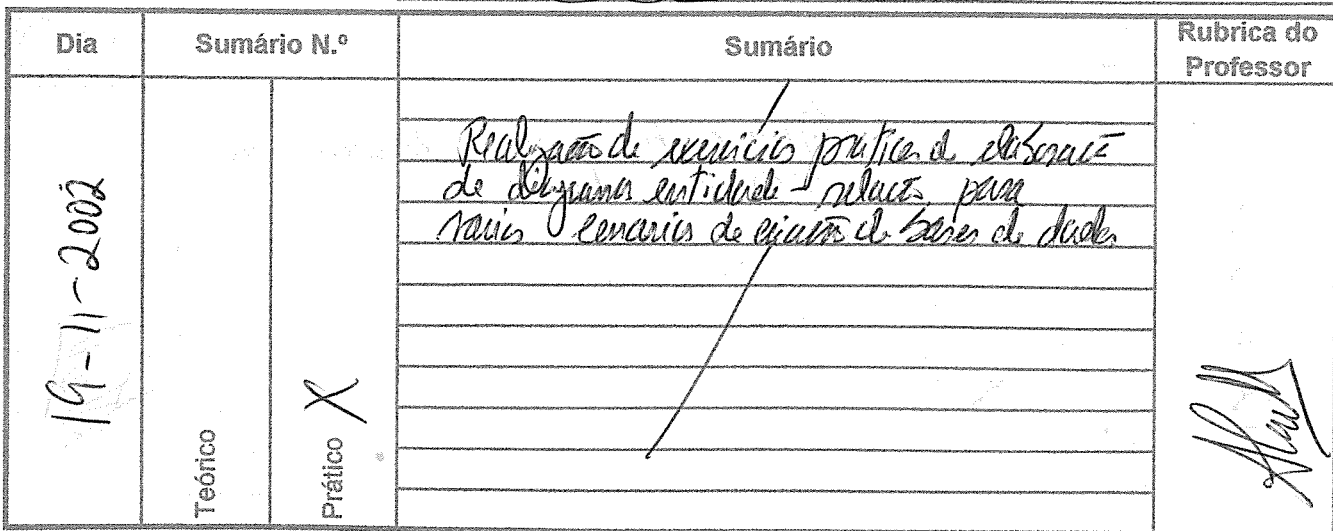 Dia
Sumário N.º
Sumário
Rubrica do
Professor
19-11-2002
Teórico
Prático X
Realização de exercícios práticos de elaboração
de diagramas entidade-relação para
vários cenários de criação de bases de dados